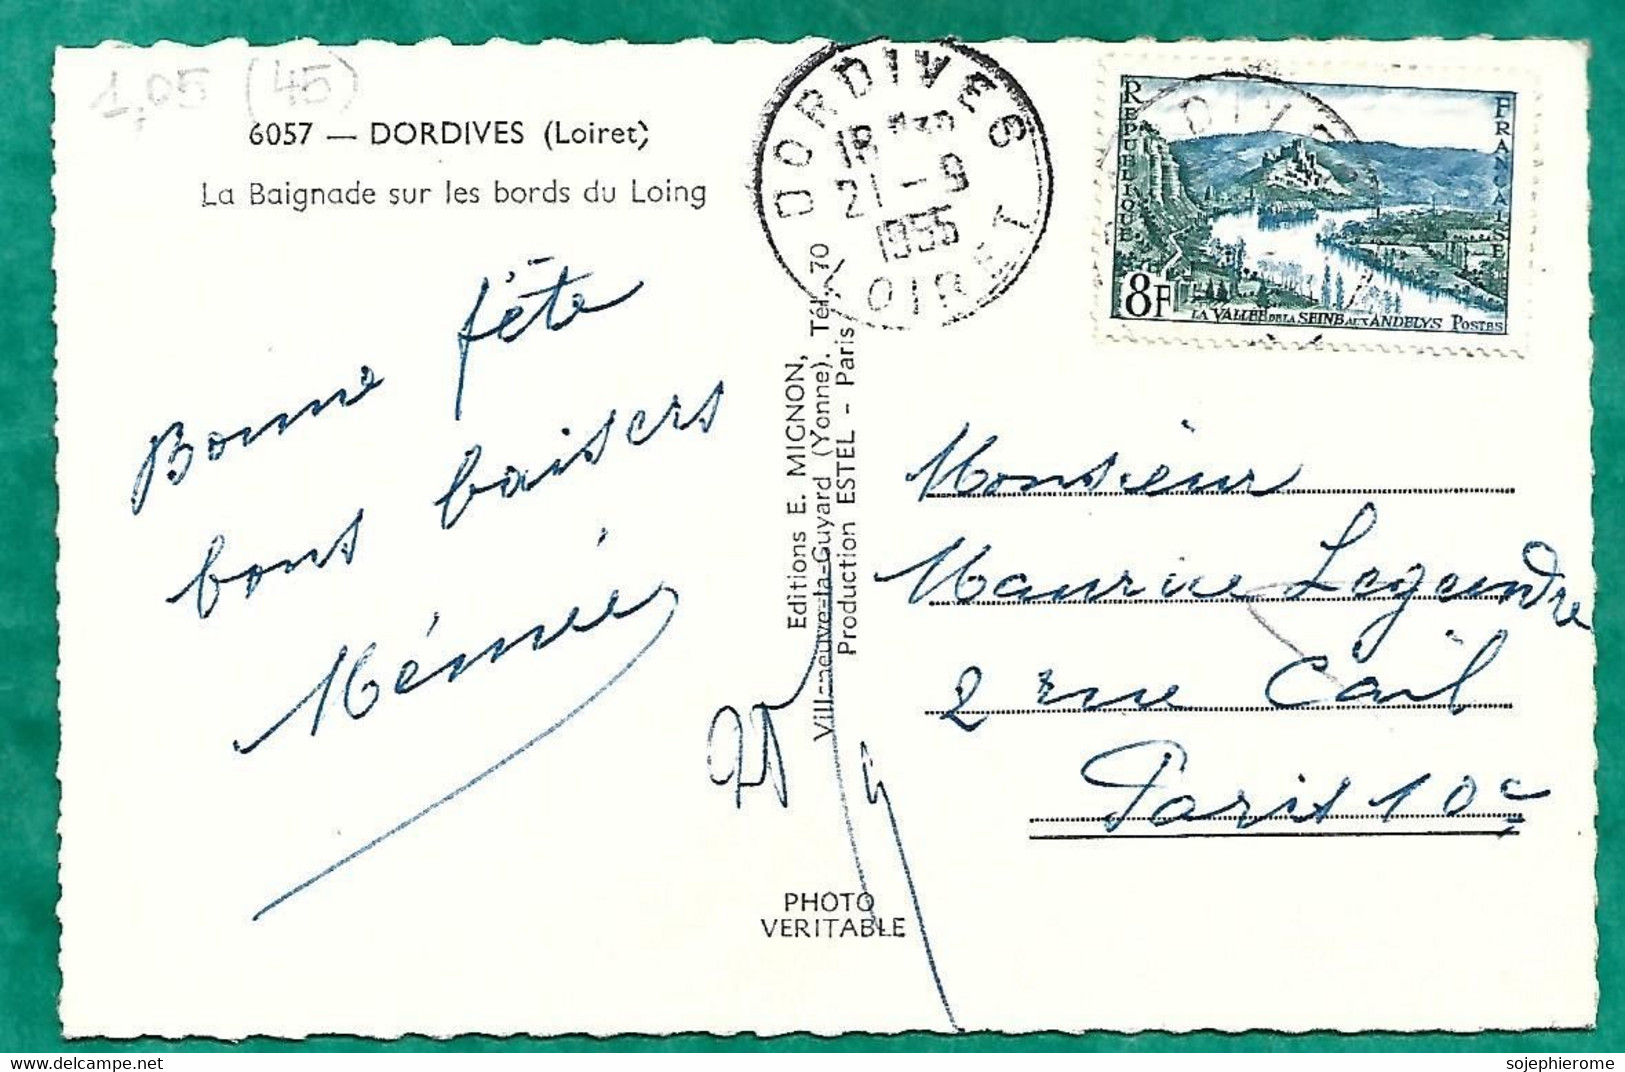 1,05 (45)
6057 — DORDIVES (Loiret)
La Baignade sur les bords du Loing
DORDIVES
18 H30
21 - 9
1955
LOIRET
REPUBLIQUE FRANCAISE
8F
LA VALLÉE DE LA SEINE AUX ANDELYS POSTES
Bonne fête
bons baisers
Mémée
Editions E. MIGNON,
Villeneuve-la-Guyard (Yonne). Tél. 70
Production ESTEL - Paris
PHOTO
VERITABLE
Monsieur
Maurice Legendre
2 rue Cail
Paris 10e
sojephierome